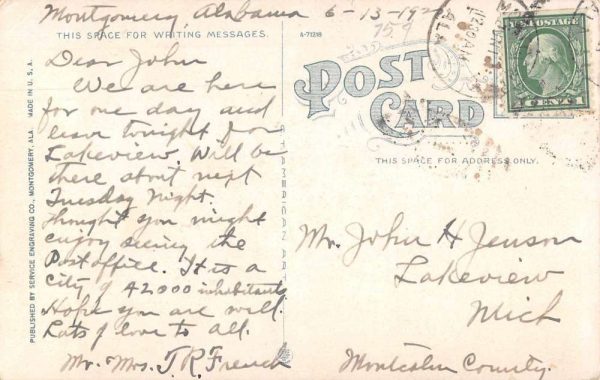 Montgomery, Alabama 6-13-192
THIS SPACE FOR WRITING MESSAGES.
A-71218
759
Dear John
We are here
for one day and
leave tonight for
Lakeview. Will be
there about next
Tuesday night.
thought you might
enjoy seeing the
Post office. It is a
City of 42000 inhabitants
Hope you are will.
Lots of love to all.
Mr. Mrs. J. R. French
PUBLISHED BY SERVICE ENGRAVING CO., MONTGOMERY, ALA. MADE IN U.S.A.
POST
CARD
U.S. POSTAGE
1 CENT 1
THIS SPACE FOR ADDRESS ONLY.
Mr. John H Jenson
Lakeview
Mich
Montcalm County.